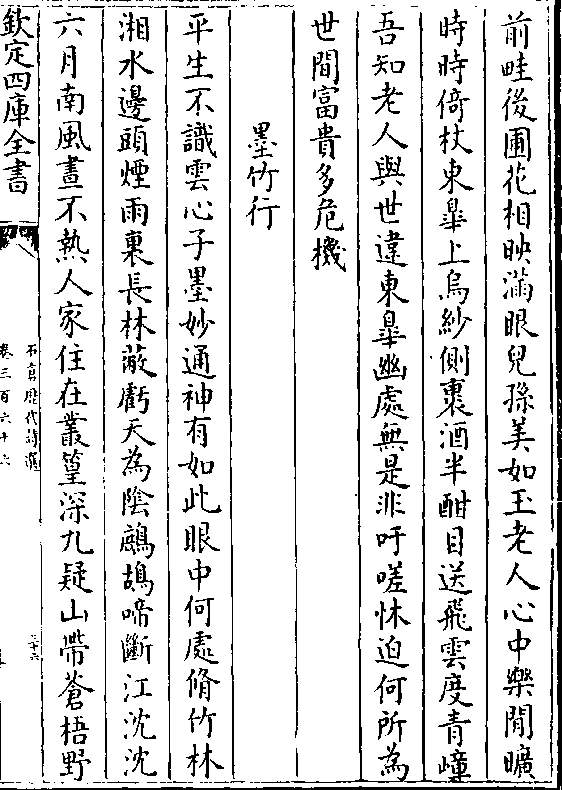 前畦後圃花相映滿眼兒孫美如玉老人心中樂閒曠
時時倚杖東臯上烏紗側裹酒半酣目送飛雲度青嶂
吾知老人與世違東臯幽處無是非吁嗟怵迫何所為
世間富貴多危機
墨竹行
平生不識雲心子墨妙通神有如此眼中何處脩竹林
湘水邊頭煙雨裏長林蔽虧天為陰鷓鴣啼斷江沈沈
六月南風晝不熱人家住在叢篁深九疑山帶蒼梧野
欽定四庫全書
石倉歴代詩選
卷三百六十六
三十六